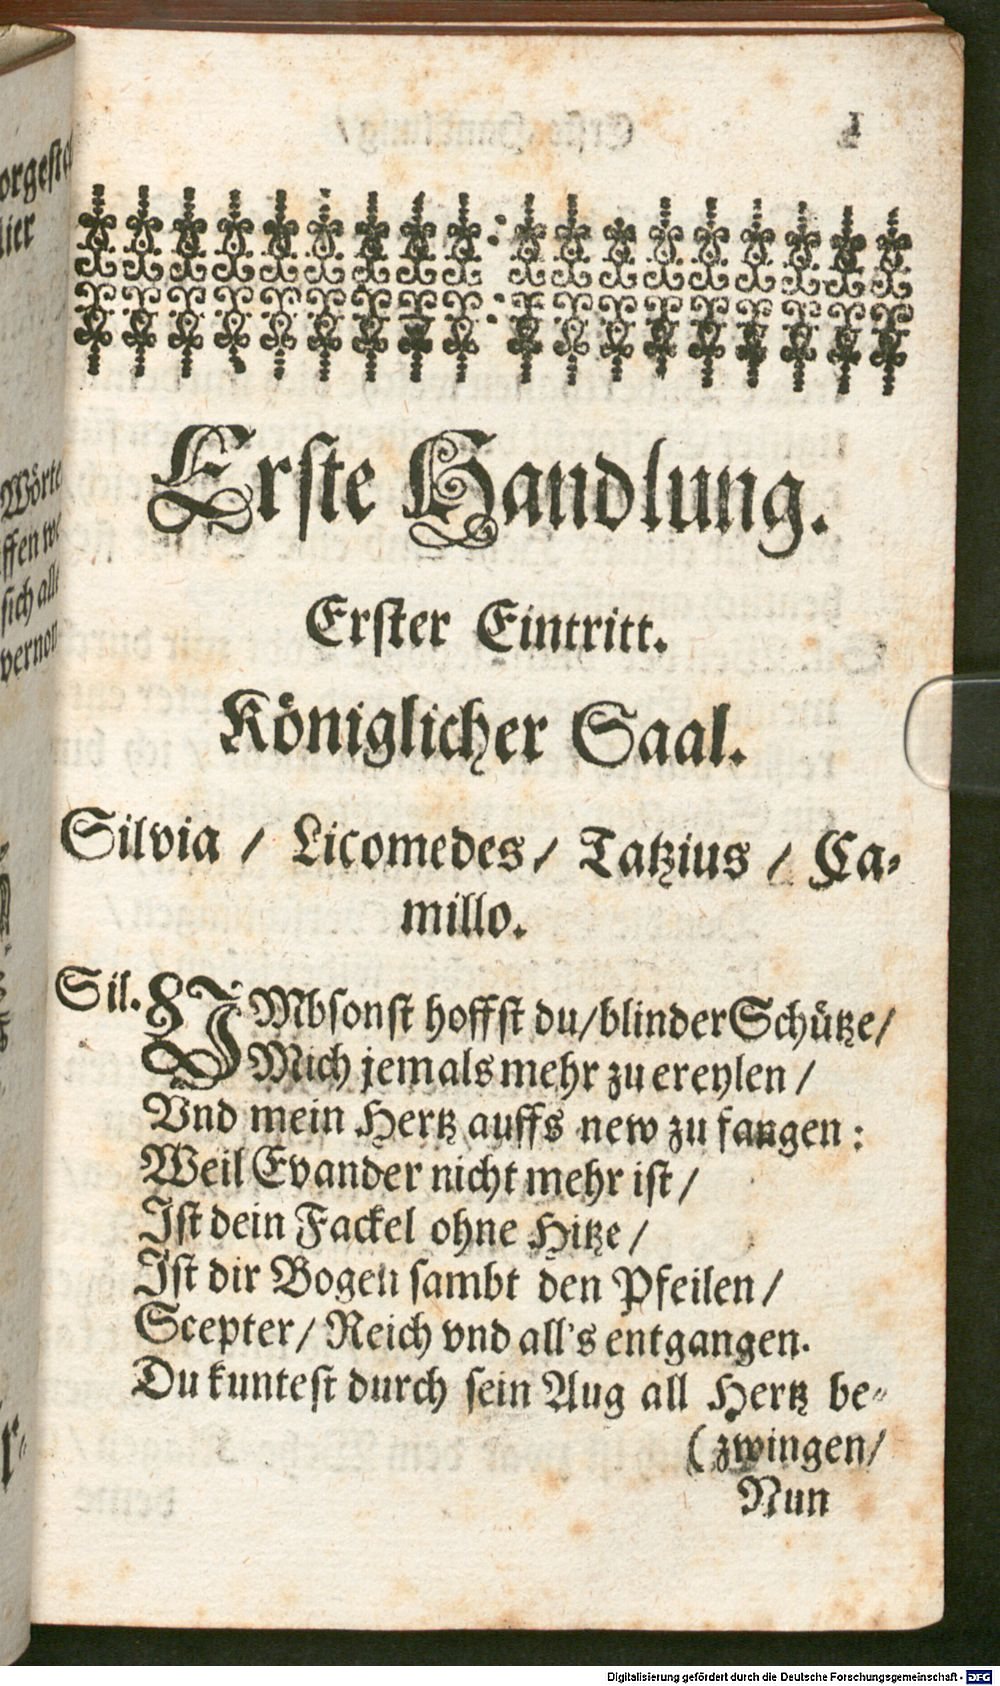 1
orgest
lier
Wörte
ffen we
sich alle
vernon
Erste Handlung.
Erster Eintritt.
Königlicher Saal.
Silvia / Licomedes / Tatzius / Ca-
millo.
Sil. UMbsonst hoffst du / blinder Schütze /
Mich jemals mehr zu ereylen /
Vnd mein Hertz auffs new zu fangen:
Weil Evander nicht mehr ist /
Ist dein Fackel ohne Hitze /
Ist dir Bogen sambt den Pfeilen /
Scepter / Reich vnd all's entgangen.
Du kuntest durch sein Aug all Hertz be-
(zwingen /
Nun
Digitalisierung gefördert durch die Deutsche Forschungsgemeinschaft - DFG